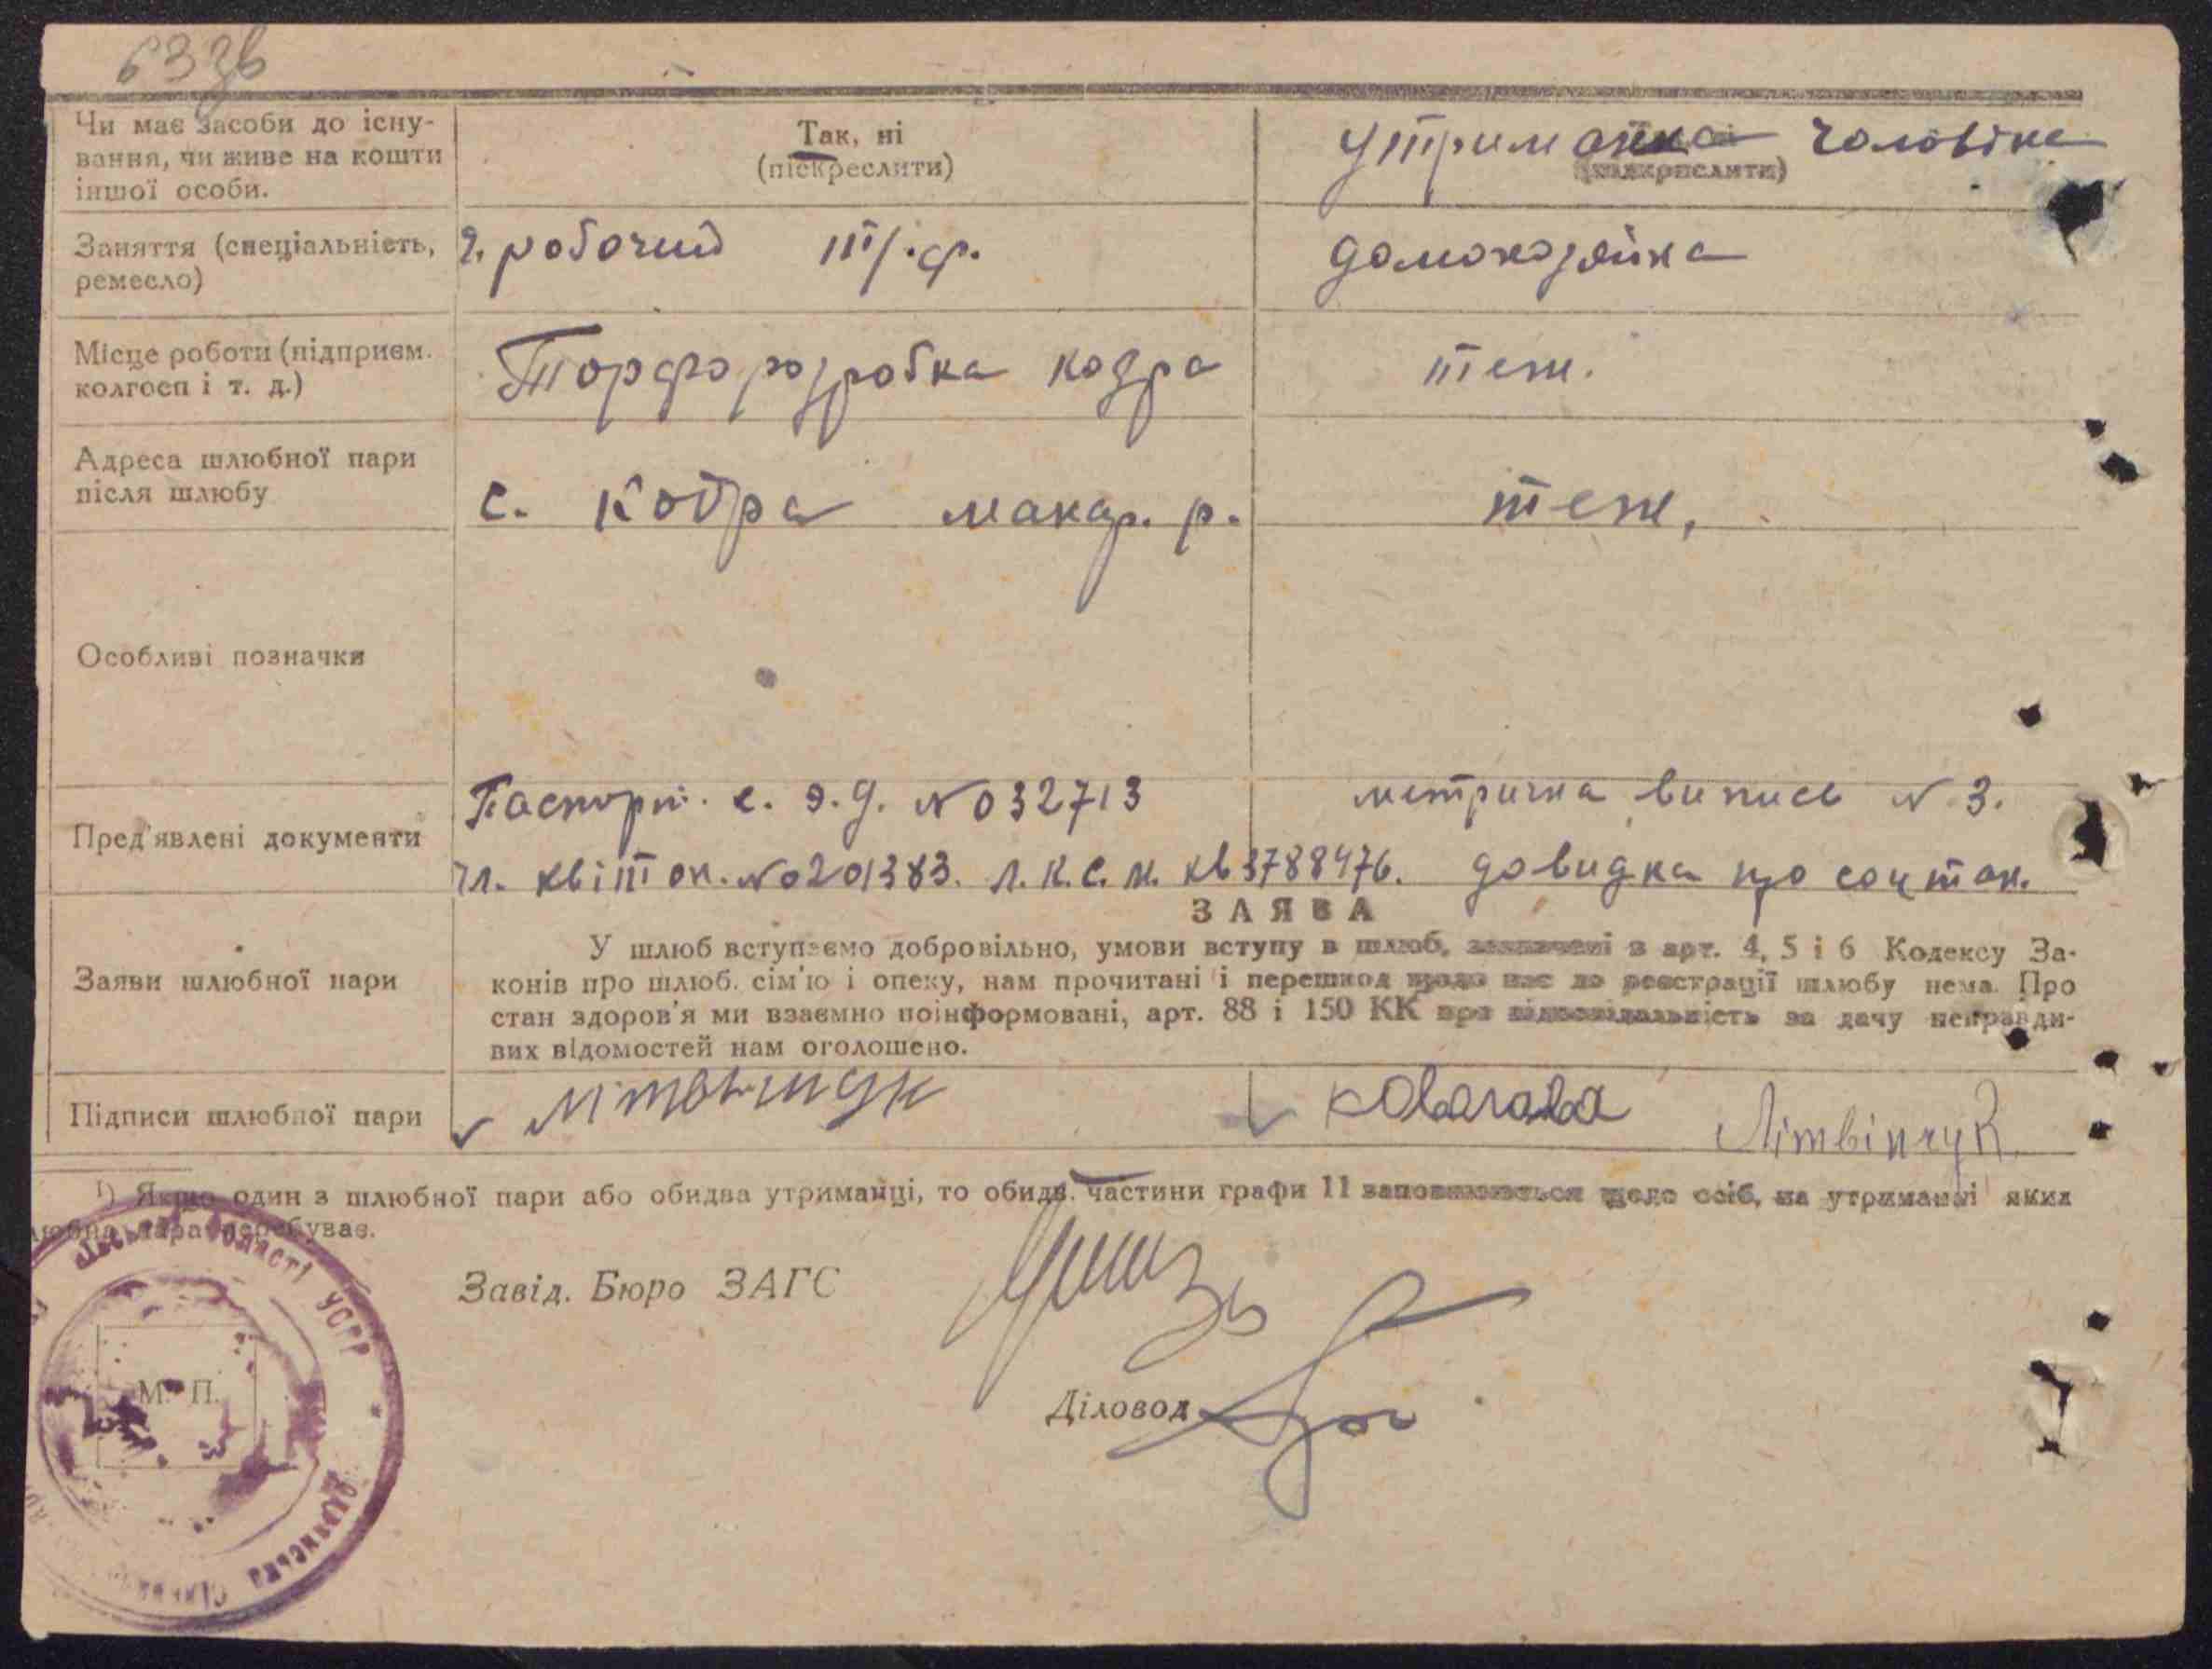 63зв
Чи має засоби до існу-
вання, чи живе на кошти
іншої особи.
Так, ні
(підкреслити)
утриманка чоловіка
(підкрислити)
Заняття (спеціальність,
ремесло)
робочий т/.ф.
домохозяйка
Місце роботи (підприєм.
колгосп і т. д.)
Торфорозробка кодра
теж.
Адреса шлюбної пари
після шлюбу
с. Кодра макар. р.
теж,
Особливі позначки
Пред'явлені документи
Паспорт. с. э. д. № 032713
метрична випись № 3.
чл. квіток. № 201383. л. к. с. м. кв 3788476.
довидка про соцстан.
ЗАЯВА
Заяви шлюбної пари
У шлюб вступаємо добровільно, умови вступу в шлюб, зазначені в арт. 4, 5 і 6 Кодексу За-
конів про шлюб. сім'ю і опеку, нам прочитані і перешкод щодо нас до реєстрації шлюбу нема. Про
стан здоров'я ми взаємно поінформовані, арт. 88 і 150 КК про відповідальність за дачу неправди-
вих відомостей нам оголошено.
Підписи шлюбної пари
Літвінчук
Літвінчук
1) Якщо один з шлюбної пари або обидва утриманці, то обидв. частини графи 11 заповнюються щодо осіб, на утриманні яких
шлюбна пара перебуває.
області УСРР
Завід. Бюро ЗАГС
М. П.
Діловод